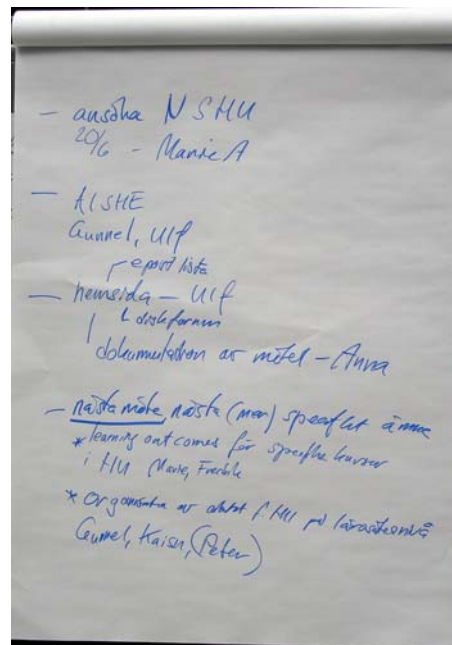 — ansöka NSHU
20/6 - Marie A
— AISHE
Gunnel, Ulf
epost lista
— hemsida — Ulf
diskforum
dokumentation av mötet - Anna
— nästa möte, nästa (mer) specifikt ämne
* learning outcomes för specifika kurser
i HU Marie, Fredrik
* organisation av arbetet f. HU på lärosätesnivå
Gunnel, Kaisu, (Peter)